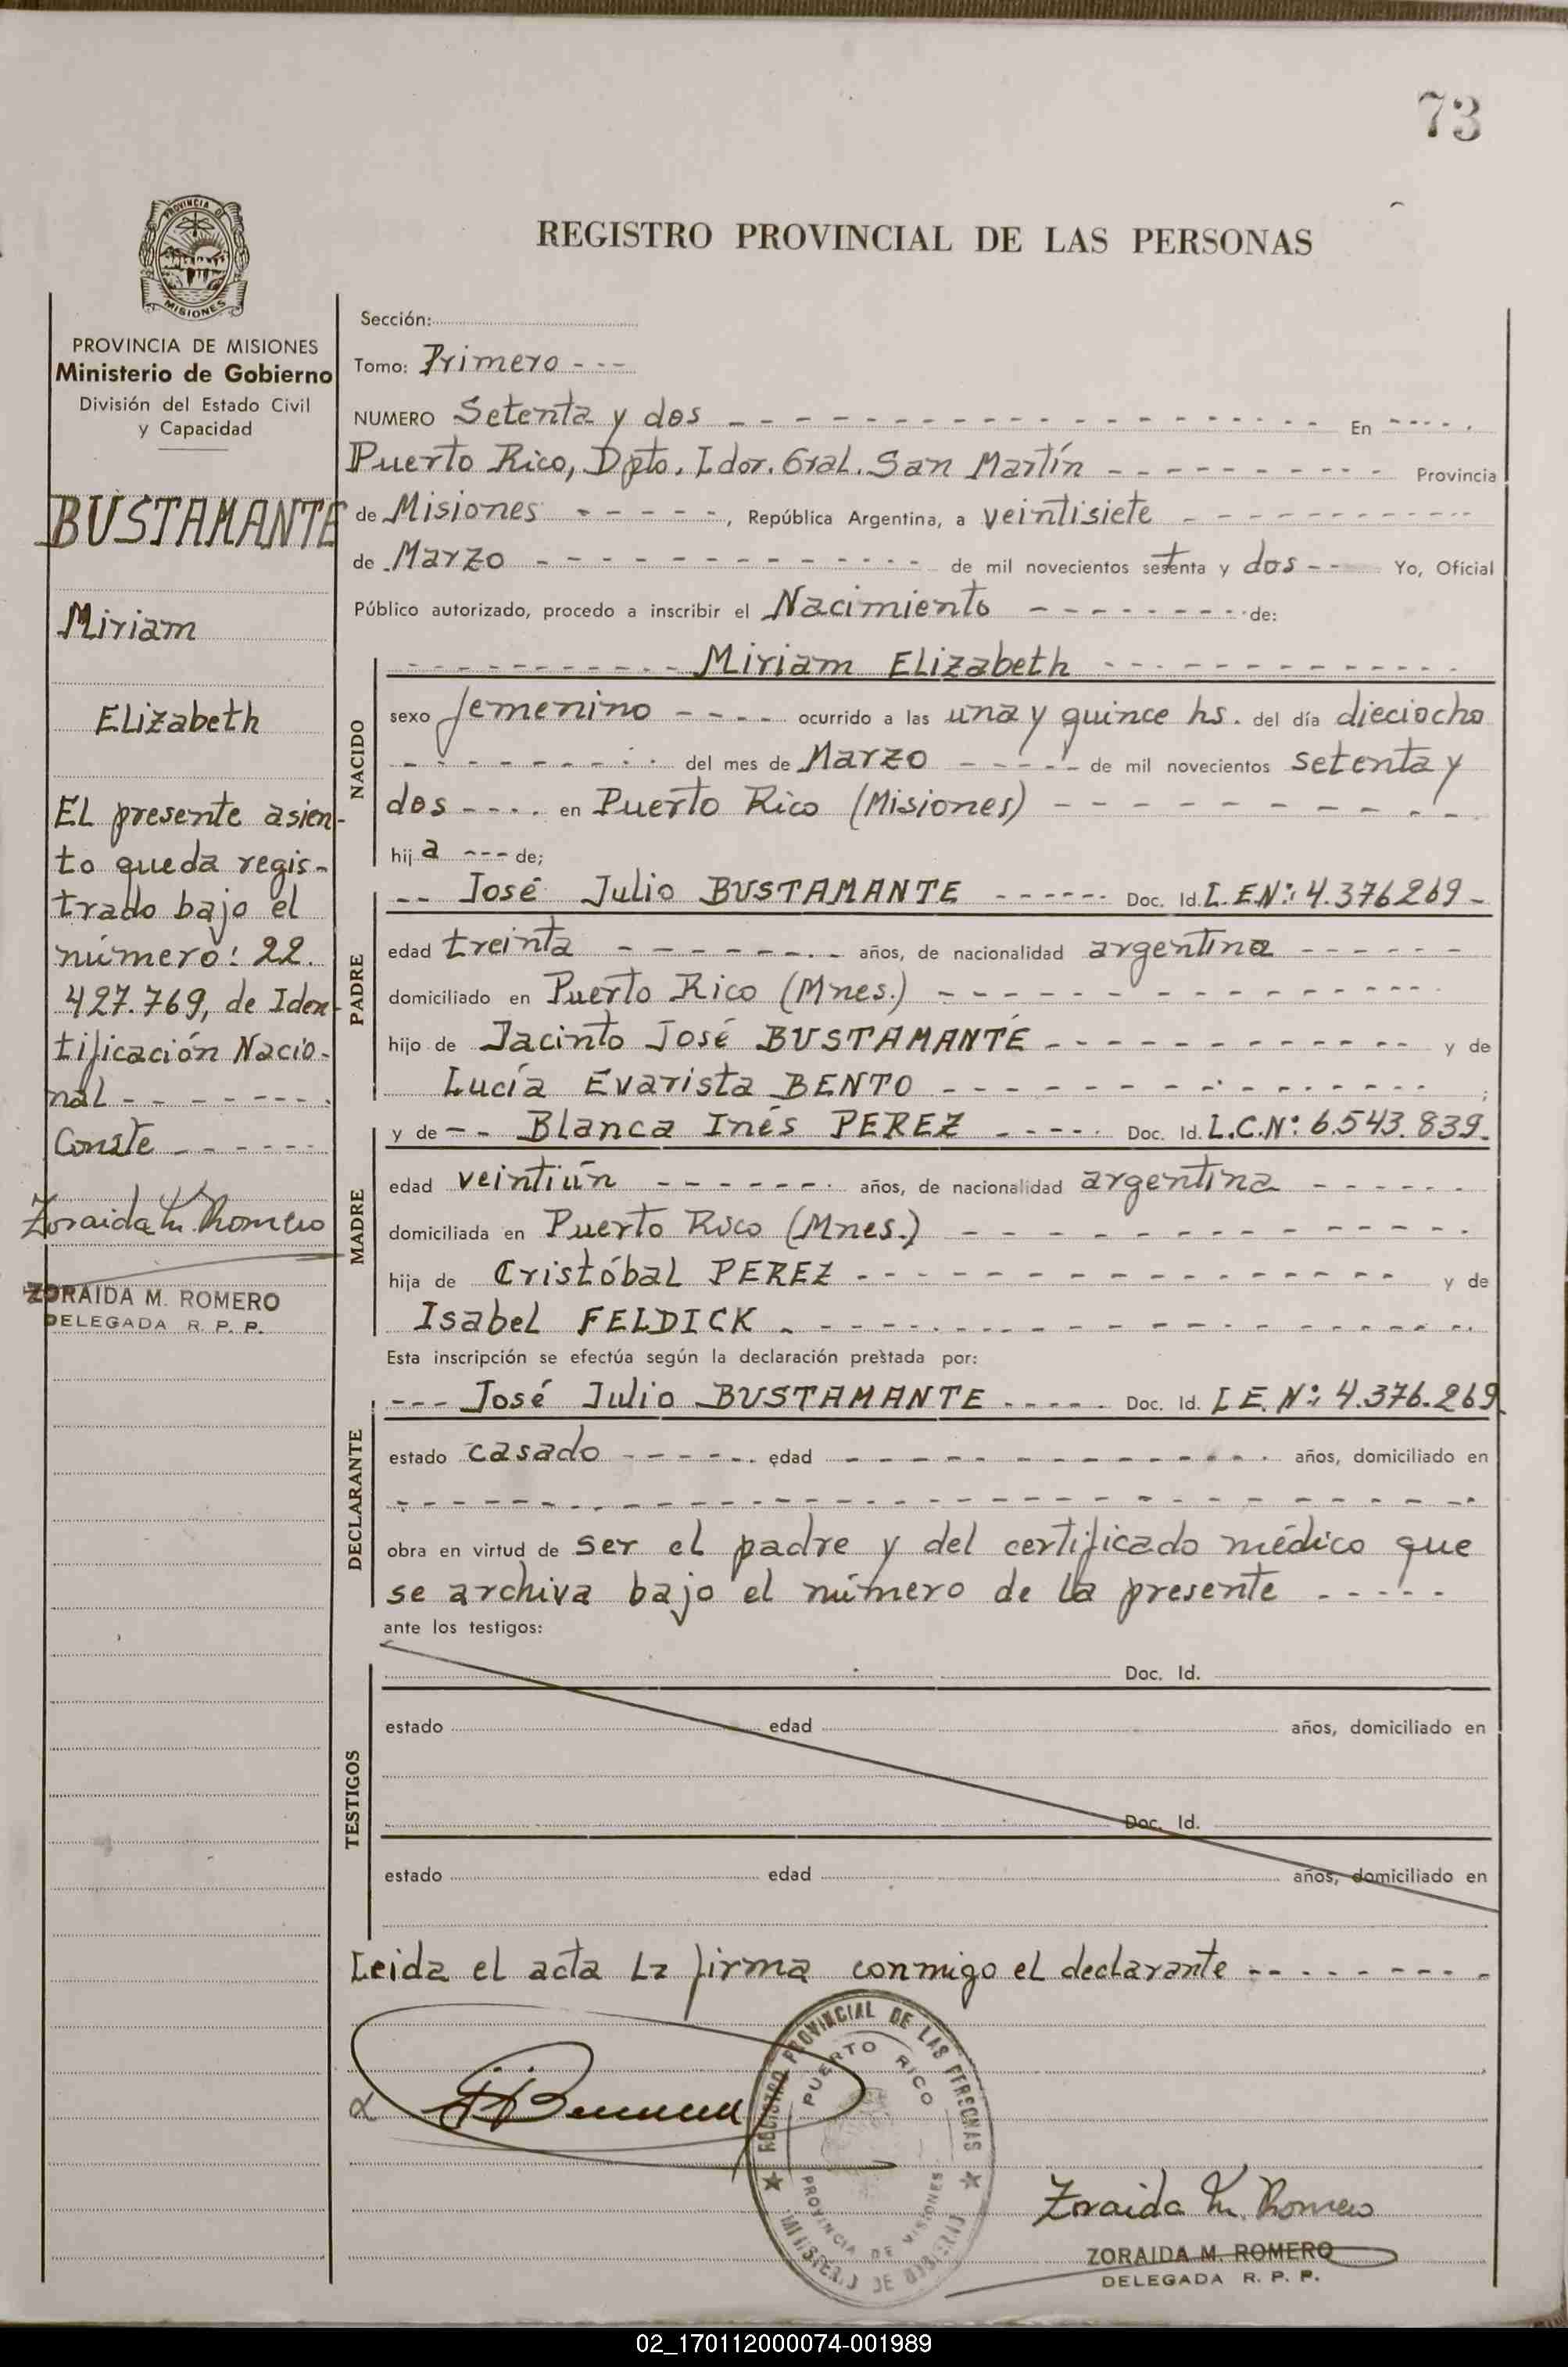 73
PROVINCIA DE
MISIONES
REGISTRO PROVINCIAL DE LAS PERSONAS
PROVINCIA DE MISIONES
Ministerio de Gobierno
División del Estado Civil
y Capacidad
BUSTAMANTE
Miriam
Elizabeth
El presente asien-
to queda regis-
trado bajo el
número: 22.
427.769, de Iden-
tificación Nacio-
nal - - - - - - -.
Conste - - - - - -
Zoraida M. Romero
ZORAIDA M. ROMERO
DELEGADA R. P. P.
Sección:
Tomo: Primero - - -
NUMERO Setenta y dos - - - - - - - - - - - - - - - - - - En - - - - -
Puerto Rico, Dpto. Ldor. Gral. San Martín - - - - - - - - - Provincia
de Misiones - - - - - -, República Argentina, a veintisiete - - - - - - - - - - -
de Marzo - - - - - - - - - - - - de mil novecientos setenta y dos - - Yo, Oficial
Público autorizado, procedo a inscribir el Nacimiento - - - - - - - - - de:
- - - - - - - - - - - Miriam Elizabeth - - - - - - - - - - - - -
NACIDO
sexo femenino - - - - ocurrido a las una y quince hs. del día dieciocho
- - - - - - - - - del mes de Marzo - - - - - de mil novecientos setenta y
dos - - - - en Puerto Rico (Misiones) - - - - - - - - - - -
hija - - - de;
PADRE
- - José Julio BUSTAMANTE - - - - - - Doc. Id. L.E.Nº: 4.376269 -
edad treinta - - - - - - - - años, de nacionalidad argentina - - - - - -
domiciliado en Puerto Rico (Mnes.) - - - - - - - - - - - - - - -
hijo de Jacinto José BUSTAMANTE - - - - - - - - - - - y de
Lucía Evarista BENTO - - - - - - - - - - - - - - ;
MADRE
y de - - Blanca Inés PEREZ - - - - - Doc. Id. L.C.Nº: 6.543.839.
edad veintiún - - - - - - - años, de nacionalidad argentina - - - - - -
domiciliada en Puerto Rico (Mnes.) - - - - - - - - - - - -
hija de Cristóbal PEREZ - - - - - - - - - - - - - - - - y de
Isabel FELDICK - - - - - - - - - - - - - - - - - -
Esta inscripción se efectúa según la declaración prestada por:
DECLARANTE
- - - José Julio BUSTAMANTE - - - - - Doc. Id. L.E. Nº: 4.376.269
estado casado - - - - - - edad - - - - - - - - - - - - años, domiciliado en
- - - - - - - - - - - - - - - - - - - - - - - - - - - - - - -
obra en virtud de ser el padre y del certificado médico que
se archiva bajo el número de la presente - - - - -
ante los testigos:
TESTIGOS
Doc. Id.
estado edad años, domiciliado en
Doc. Id.
estado edad años, domiciliado en
Leida el acta la firma conmigo el declarante - - - - - - - - -
REGISTRO PROVINCIAL DE LAS PERSONAS
PUERTO RICO
PROVINCIA DE MISIONES
MINISTERIO DE GOBIERNO
Zoraida M. Romero
ZORAIDA M. ROMERO
DELEGADA R. P. P.
02_170112000074-001989